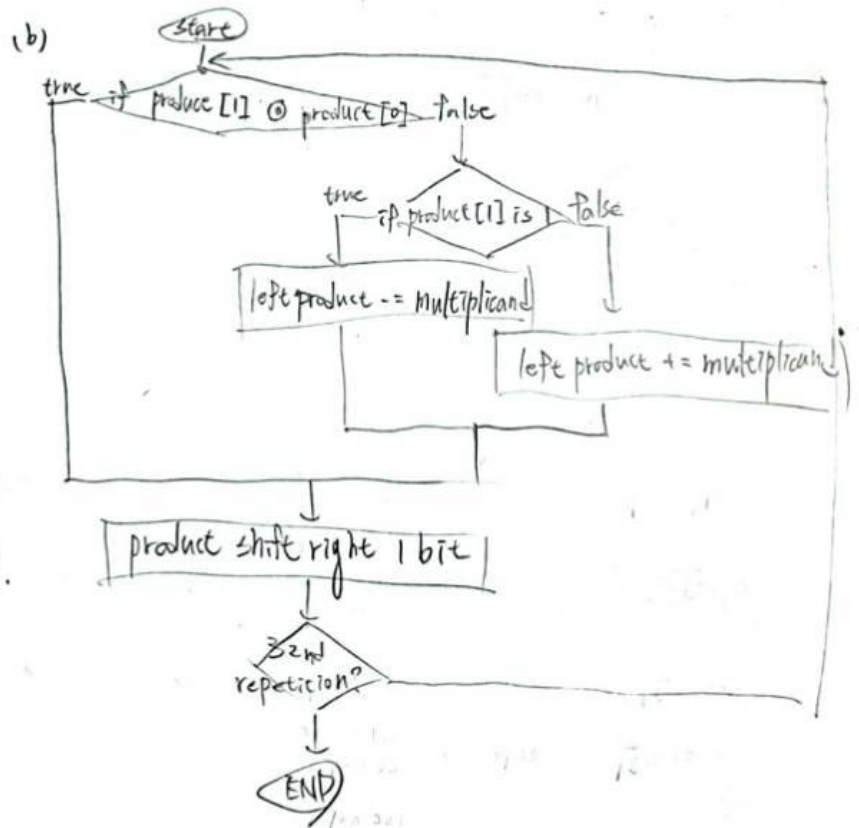 (b)
start
true if produce [1] ⊙ product [0] false
true if product [1] is 1 false
left product -= multiplicand
left product += multiplicand
product shift right 1 bit
32nd
repeticion?
END